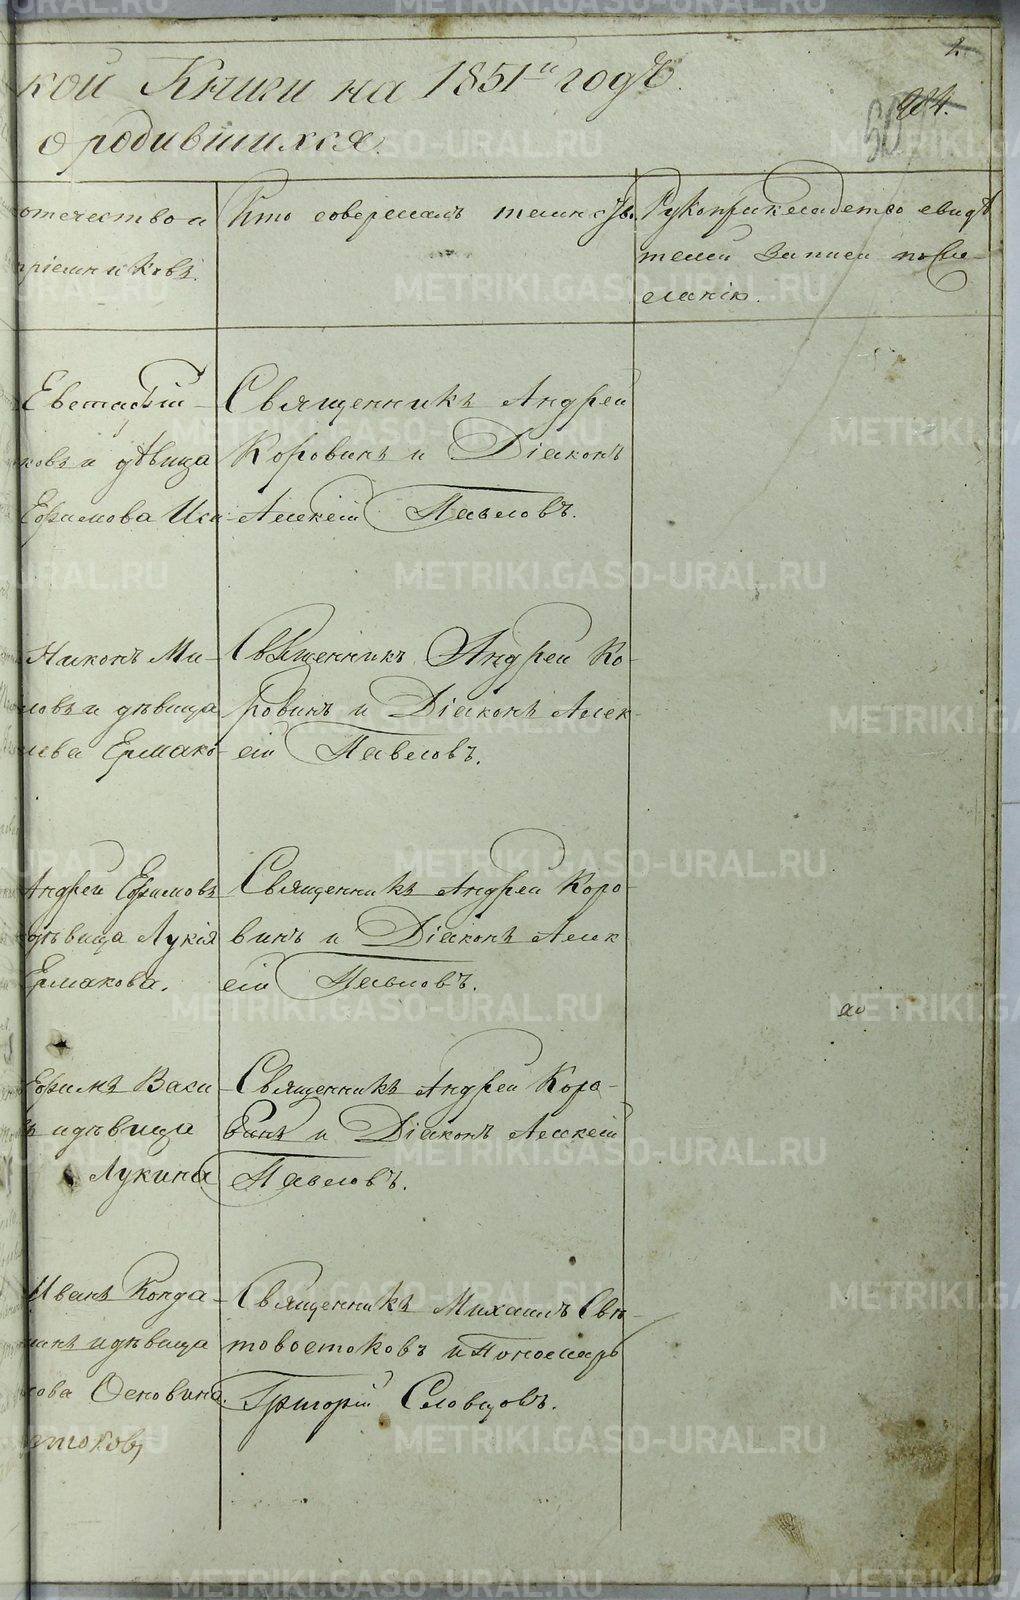 2.
кой Книги на 1851й годъ.
204.
о родившихся.
отчество и
пріемниковъ.
Кто совершалъ таинство.
Рукоприкладство свидѣ
телей записи по же-
ланію.
Евстафій
ковъ и дѣвица
Ефимова Иса-
Священникъ Андрей
Коровинъ и Діаконъ
Алексій Павловъ.
Никонъ Ми-
ловъ и дѣвица
лева Ермако-
Священникъ Андрей Ко-
ровинъ и Діаконъ Алек-
сій Павловъ.
Андрей Ефимовъ
дѣвица Лукія
Ермакова.
Священникъ Андрей Коро-
винъ и Діаконъ Алек
сій Павловъ.
Ефимъ Васи-
ъ и дѣвица
Лукина
Священникъ Андрей Коро-
винъ и Діаконъ Алексій
Павловъ.
Иванъ Конда-
инъ и дѣвица
сова Осковина.
Священникъ Михаилъ Свѣ-
товостоковъ и Пономарь
Григорій Словцовъ.
METRIKI.GASO-URAL.RU